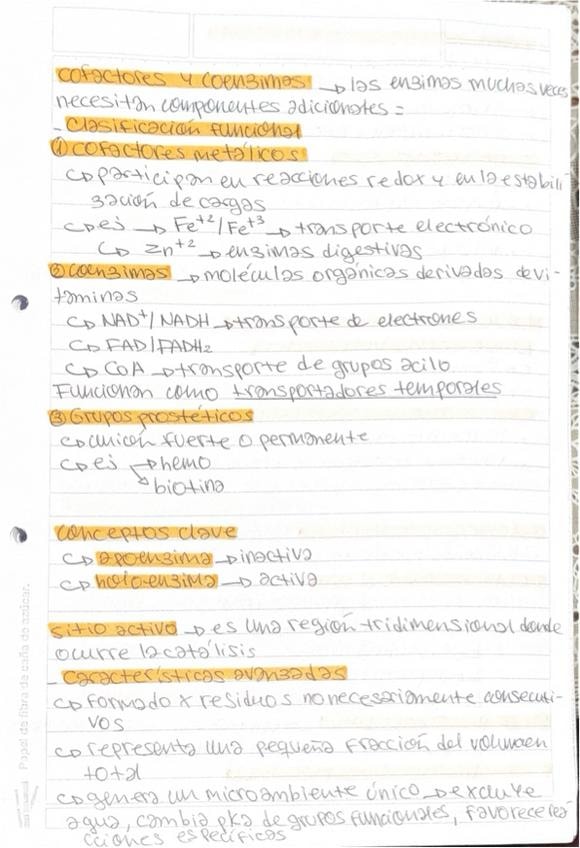 cofactores y coenzimas → las enzimas muchas veces
necesitan componentes adicionales =
- clasificación funcional
① cofactores metálicos
↳ participan en reacciones redox y en la estabili
zación de cargas
↳ ej → Fe⁺²/Fe⁺³ → transporte electrónico
↳ Zn⁺² → enzimas digestivas
② coenzimas → moléculas orgánicas derivadas de vi-
taminas
↳ NAD⁺/NADH → transporte de electrones
↳ FAD/FADH₂
↳ CoA → transporte de grupos acilo
Funcionan como transportadores temporales
③ Grupos prostéticos
↳ unión fuerte o permanente
↳ ej → hemo
↘ biotina
conceptos clave
↳ apoenzima → inactiva
↳ holoenzima → activa
sitio activo → es una región tridimensional donde
ocurre la catálisis
- características avanzadas
↳ formado x residuos no necesariamente consecuti-
vos
↳ representa una pequeña fracción del volumen
total
↳ genera un microambiente único → excluye
agua, cambia pka de grupos funcionales, favorece rea
cciones específicas
Papel de fibra de caña de azúcar.